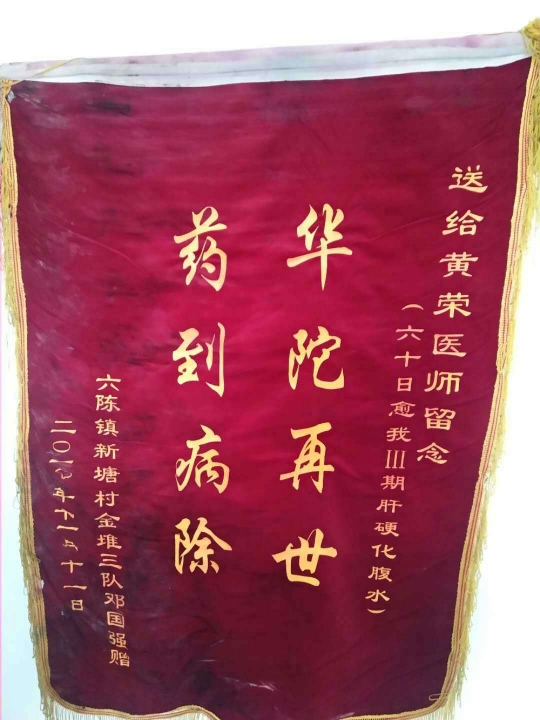 送给黄荣医师留念
(六十日愈我III期肝硬化腹水)
华陀再世
药到病除
六陈镇新塘村金堆三队邓国强赠